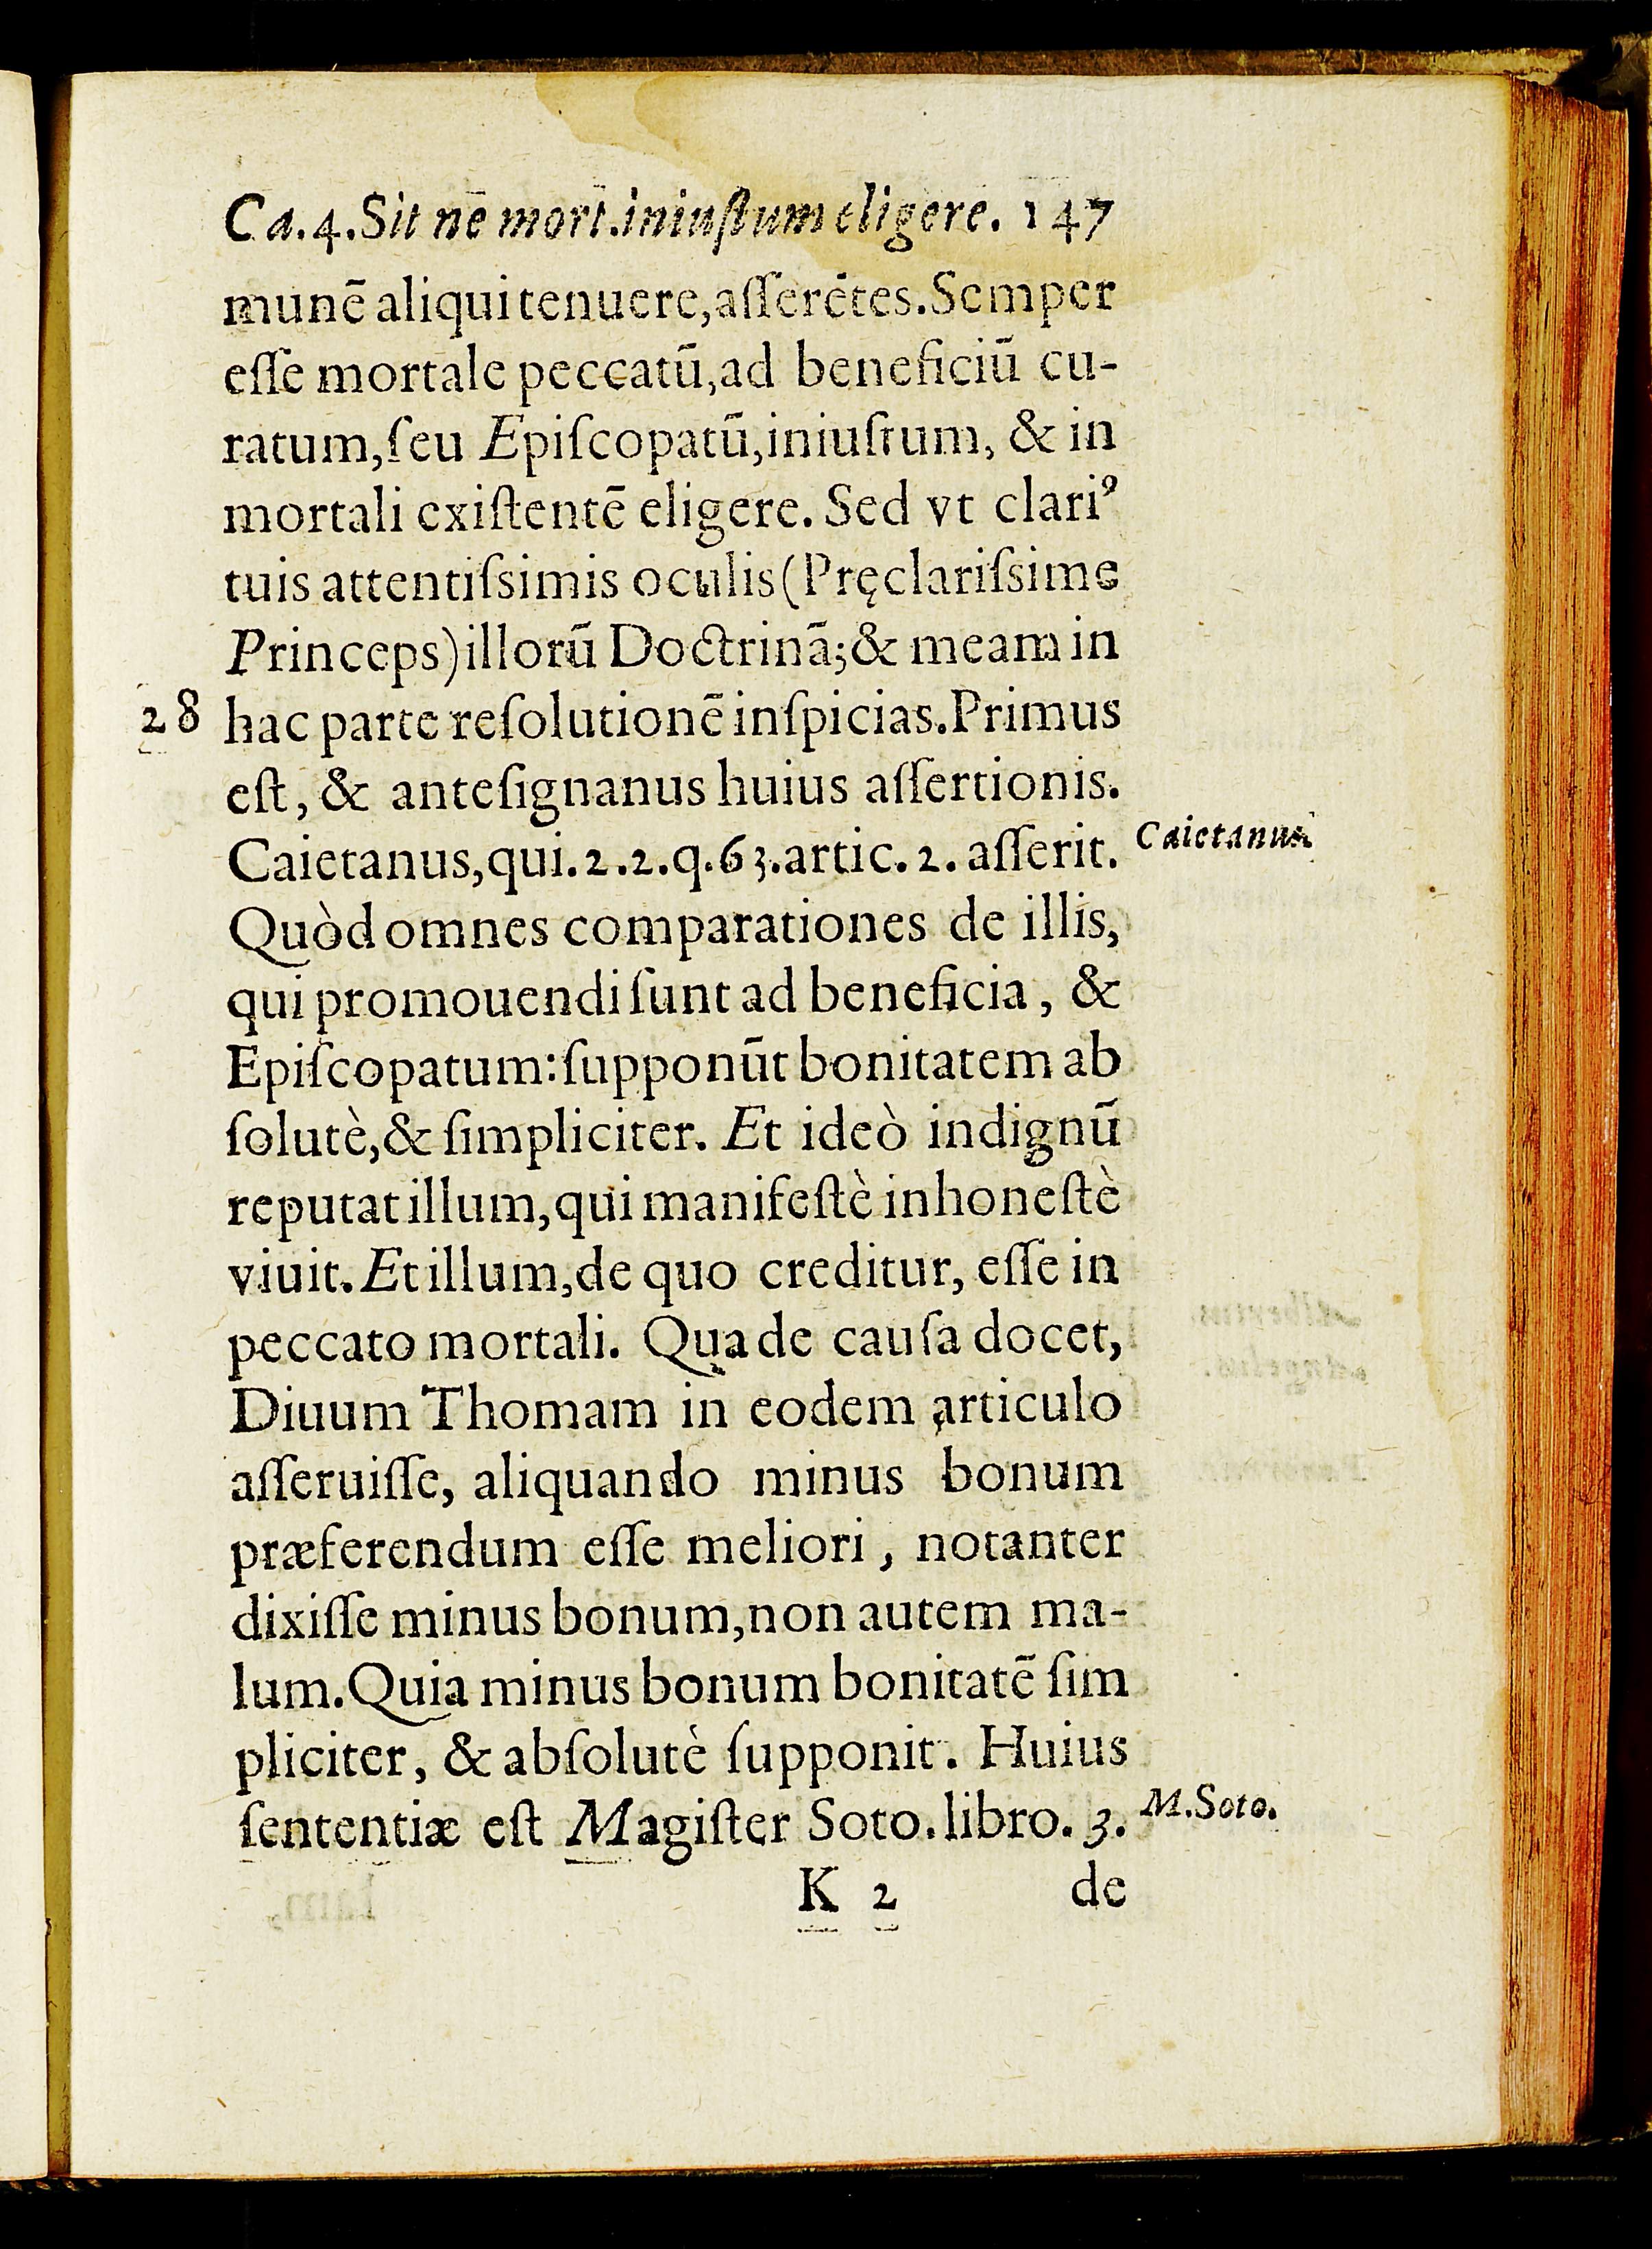 Ca.4.Sit nē mort.iniuſtum eligere. 147
munē aliqui tenuere,aſſerētes.Semper
eſſe mortale peccatū,ad beneficiū cu-
ratum,ſeu Epiſcopatū,iniuſtum, & in
mortali exiſtentē eligere. Sed vt clariꝰ
tuis attentiſsimis oculis(Pręclariſsime
Princeps)illorū Doctrinā;& meam in
28 hac parte reſolutionē inſpicias.Primus
eſt, & anteſignanus huius aſſertionis.
Caietanus,qui.2.2.q.63.artic.2. aſſerit. Caietanus.
Quòd omnes comparationes de illis,
qui promouendi ſunt ad beneficia, &
Epiſcopatum:ſupponūt bonitatem ab
ſolutè,& ſimpliciter. Et ideò indignū
reputat illum,qui manifeſtè inhoneſtè
viuit.Et illum,de quo creditur, eſſe in
peccato mortali. Qua de cauſa docet,
Diuum Thomam in eodem articulo
aſſeruiſſe, aliquando minus bonum
præferendum eſſe meliori, notanter
dixiſſe minus bonum,non autem ma-
lum.Quia minus bonum bonitatē ſim
pliciter, & abſolutè ſupponit. Huius
ſententiæ eſt Magiſter Soto.libro.3. M.Soto.
K 2 de